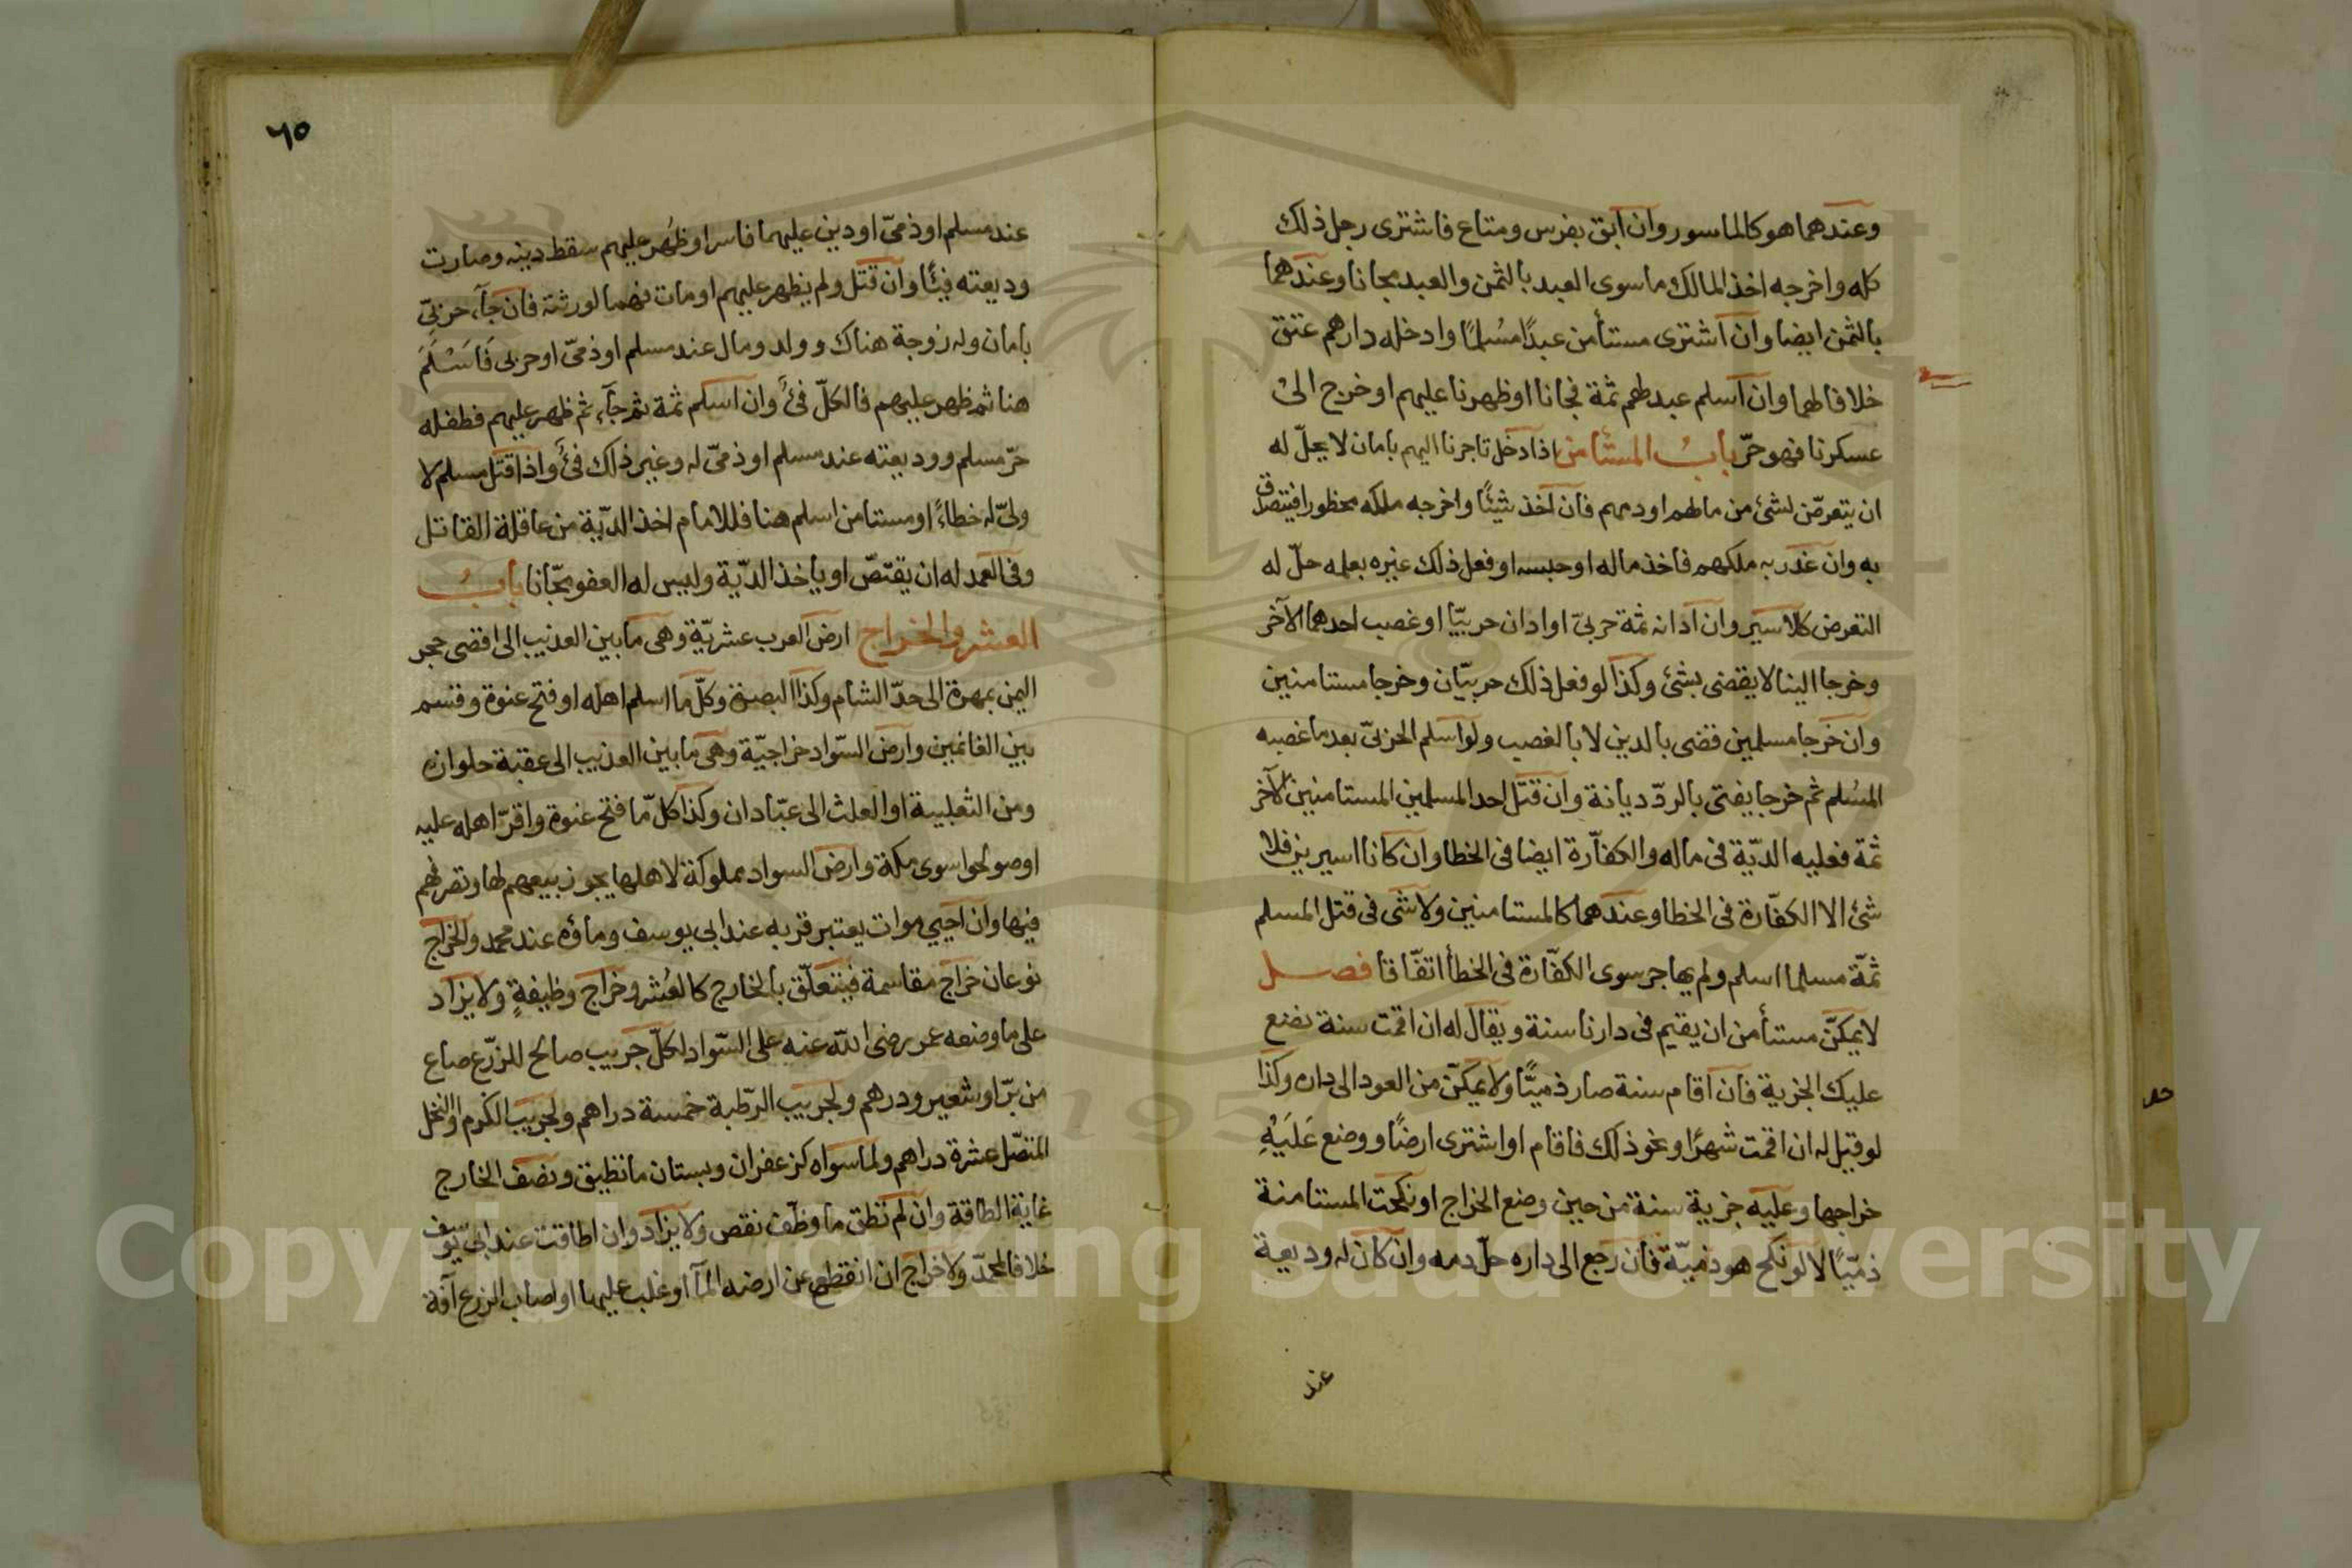 وعندهما هو كالماسور وان ابق بفرس ومتاع فاشترى رجل ذلك
كله واخرجه اخذ المالك وما سوى العبد بالثمن والعبد مجانا وعندهما
بالثمن ايضا وان اشترى مستأمن عبدًا مسُلمًا وادخله دارهم عتق
خلافا لهما وان اسلم عبد لهم ثمة فجانا او ظهرنا عليهم او خرج الىٰ
عسكرنا فهو حرّ بابُ المستأمن اذا دخل تاجرنا اليهم بامان لا يحلّ له
ان يتعرّض لشئ من مالهم او دمهم فان اخذ شيئًا واخرجه ملكه محظورا فيتصدق
به وان غدر به ملكهم فاخذ ماله او حبسه او فعل ذلك غيره بعلمه حلّ له
التعرض كالاسير وان ادانه ثمة حربىّ او ادان حربيّا او غصب احدهما الآخر
وخرجا الينا لا يقضى بشئ وكذا لو فعل ذلك حربيّان وخرجا مستامنين
وان خرجا مسلمين قضى بالدين لا بالغصب ولو اسلم الحربىّ بعد ما غصبه
المسُلم ثم خرجا يفتى بالردّ ديانة وان قتل احد المسلمين المستامنين الآخر
ثمة فعليه الديّة فى ماله والكفاّرة ايضا فى الخطا وان كانا اسيرين فلا
شئ الا الكفّارة فى الخطا وعندهما كالمستامنين ولا شى فى قتل المسلم
ثمّة مسلما اسلم ولم يهاجر سوى الكفّارة فى الخطأ اتفّاقا فصل
لا يمكنّ مستأمن ان يقيم فى دارنا سنة ويقال له ان اقمت سنة نضع
عليك الجزية فان اقام سنة صار ذميًّا ولا يمكنّ من العود الى داره وكذا
لو قيل له ان اقمت شهرًا او نحو ذلك فاقام او اشترى ارضًا ووضع عَلَيْهِ
خراجها وعليه جزية سنة من حين وضع الخراج او نكحت المستامنة
ذمّيّا لا لو نكح هو ذميّة فان رجع الى داره حلّ دمه وان كان له وديعة
عند
٦٥
عند مسلم او ذمىّ او دين عليهما فاسر او ظُهر عليهم سقط دينه وصارت
وديعته فيئًا وان قتل ولم يظهر عليهم او مات فهما لورثته فان جآء حربىّ
بامان وله زوجة هناك وولد ومال عند مسلم او ذمىّ او حربى فَاَسْلَمَ
هنا ثم ظهر عليهم فالكلّ فئ وان اسلم ثمة ثم جآء ثم ظهر عليهم فطفله
حرّ مسلم ووديعته عند مسلم او ذمىّ له وغير ذلك فئ واذا قتل مسلم لا
ولىّ له خطاءً او مستامن اسلم هنا فللامام اخذ الديّة من عاقلة القاتل
وفى العمد له ان يقتصّ او ياخذ الديّة وليس له العفو مجّانا بابُ
العشر والخراج ارض العرب عشريّة وهى ما بين العذيب الى اقصى حجر
اليمن بمهرة الى حدّ الشام وكذا البصرة وكلّ ما اسلم اهله او فتح عنوة وقسم
بين الغانمين وارض السّواد خراجيّة وهى ما بين العذيب الى عقبة حلوان
ومن الثعلبية او العلث الى عبّادان وكذا كلّ ما فتح عنوة واقرّ اهله عليه
او صولحوا سوى مكة وارض السواد مملوكة لاهلها يجوز بيعهم لها وتصرفهم
فيها وان احيي موات يعتبر قربه عند ابى يوسف وماؤه عند محمد والخراج
نوعان خراج مقاسمة فيتعلّق بالخارج كالعُشر وخراج وظيفةٍ ولا يزاد
على ما وضعه عمر رضى الله عنه على السّواد لكلّ جريب صالح للزرّع صاع
من برّ او شعير ودرهم ولجريب الرّطبة خمسة دراهم ولجريب الكرم او النخل
المتصّل عشرة دراهم ولما سواه كزعفران وبستان ما تطيق ونصف الخارج
غاية الطاقة وان لم تطق ما وظّف نقص ولا يزاد وان اطاقت عند ابى يوسف
خلافا لمحمدّ ولا خراج ان انقطع عن ارضه المآء او غلب عليها او اصاب الزرع آفة
Copyright © King Saud University
1957